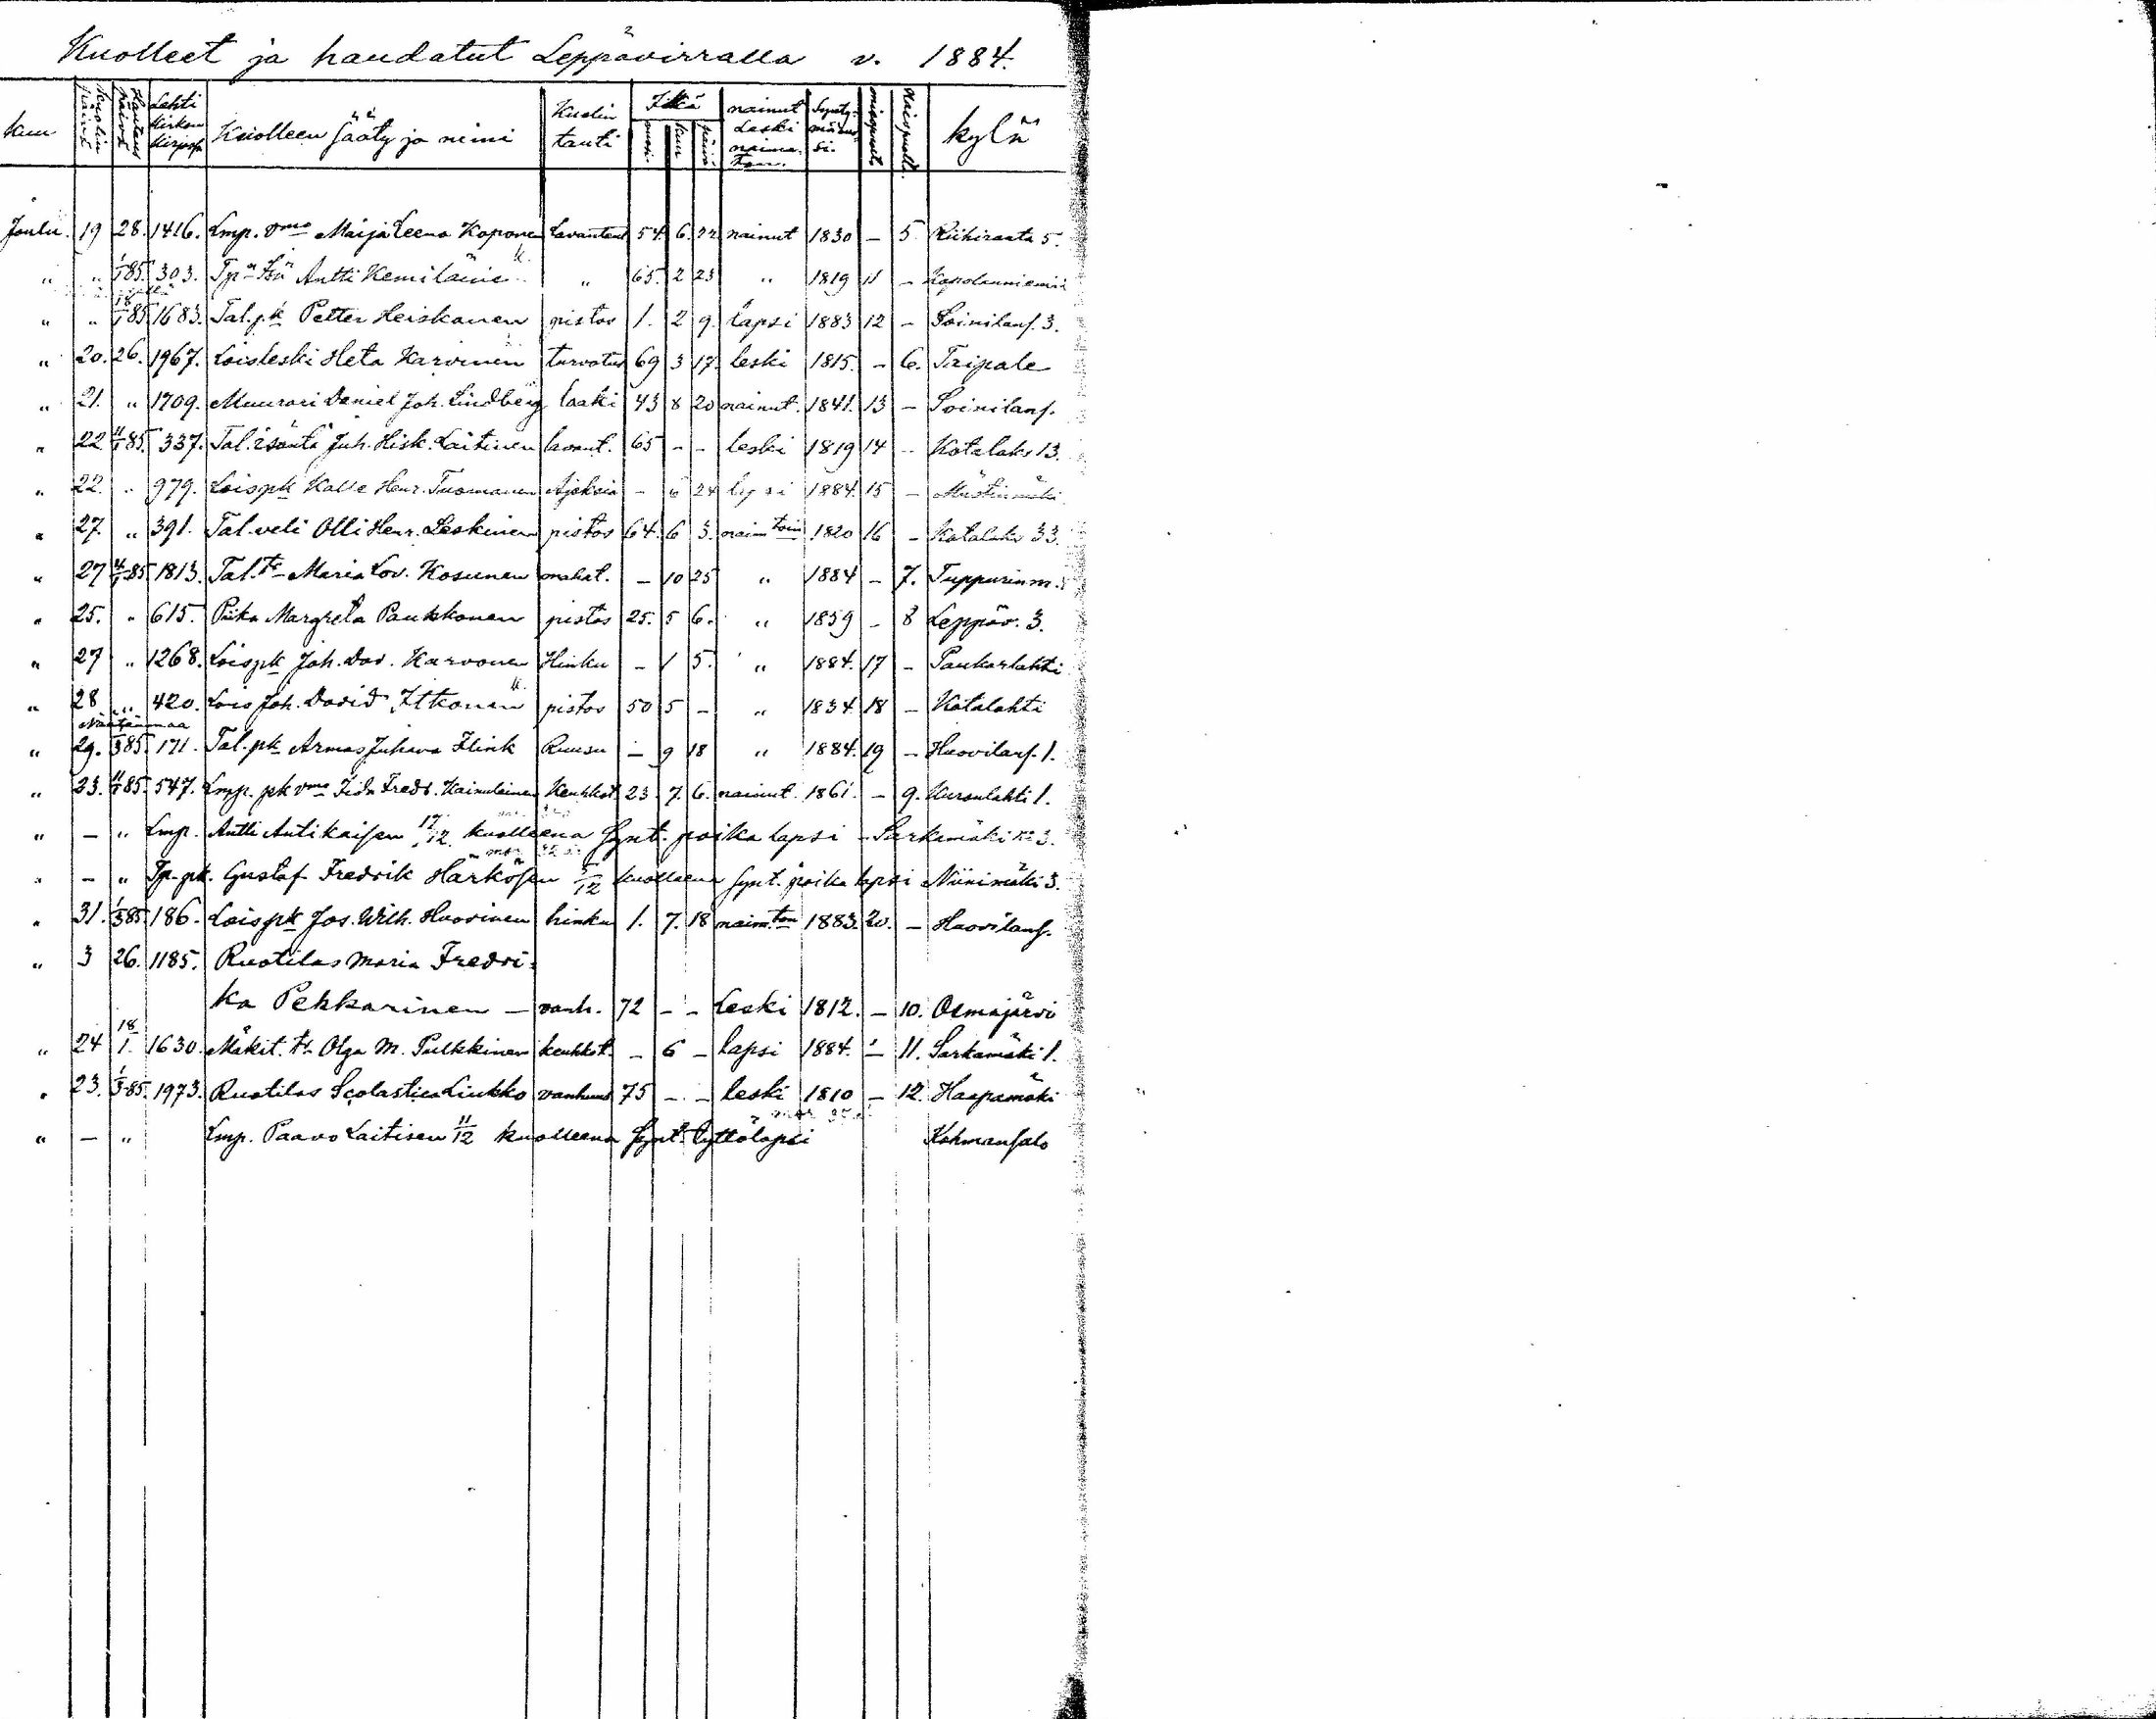 Kuolleet ja haudatut Leppävirralla v. 1884.
kuu Kuolin päivä Hautaus päivä Lehti kirkon kirjassa Kuolleen sääty ja nimi Kuolin tauti Ikä vuosi kuu päivä nainut Leski naima- ton Synty- mävuo- si. miespuolta Vaispuolt. kylä
Joulu. 19 28. 1416. Lmp. vmo Maija Leena Koponen Lavantaut 54. 6. 22 nainut 1830 – 5. Riihiraata 5.
" " 1/1 85. 303. Tp. Isä Antti Kemiläine " 65. 2 23 " 1819 11 –
" " 18/1 85 1683. Tal. pk Petter Heiskanen pistos 1. 2 9. lapsi 1883 12 – Soinilans. 3.
" 20. 26. 1967. Loisleski Heta Karvinen turvotus 69 3 17. leski 1815. – 6. Taipale
" 21. " 1709. Muurari Daniel Joh. Lindberg laaki 43 8 20 nainut. 1841. 13 – Soinilans.
" 22 4/1 85. 337. Tal. isäntä Juh. Hisk. Laitinen lavant. 65 – – leski 1819 14 – Kotalaks 13.
" 22. " 979. Lois pk Kalle Henr. Tuomanen Ajoksia – 6 24 lapsi 1884. 15 – Mustinmäki
" 27. " 391. Tal. veli Olli Henr. Leskinen pistos 64. 6 3. naimtoin 1820 16 – Kotalahti 33.
" 27 4/1 85 1813. Tal. tr Maria Lov. Kosunen mahat. – 10 25 " 1884 – 7. Tuppurinm.
" 25. " 615. Piika Margreta Paukkonen pistos 25. 5 6. " 1859 – 8 Leppäv. 3.
" 27 " 1268. Lois pk Joh. Dav. Karvonen Hinku – 1 5. " 1884. 17 – Paukarlahti
" 28 " 420. Lois Joh. David Itkonen pistos 50 5 – " 1834 18 – Kotalahti
" 29. 1/3 85. 171. Tal. pk Armas Juhana Flink Ruusu – 9 18 " 1884. 19 – Huovilans. 1.
" 23. 4/1 85. 547. Lmp. pk vmo Iida Fredr. Kainulainen Keuhkot 23 7. 6. nainut. 1861. – 9. Kuronlahti 1.
" – " Lmp. Antti Antikaisen 17/12 kuolleena synt. poika lapsi – Sarkamäki No 3.
" – " Tp. pk. Gustaf Fredrik Härkösen /12 kuolleena synt. poika lapsi Niinimäki 3.
" 31. 1/3 85 186. Lois pk Jos. Wilh. Huovinen hinku 1. 7. 18 naimton 1883. 20. – Huovilans.
" 3 26. 1185. Ruotilas Maria Fredri-
ka Pekkarinen – vanh. 72 – – Leski 1812. – 10. Osmajärvi
" 24 18/1. 1630. Mäkit. tr Olga M. Pulkkinen keuhkot. – 6 – lapsi 1884. – 11. Sarkamäki 1.
" 23. 1/3 85. 1973. Ruotilas Scolastica Liukko vanhuus 75 – – leski 1810 – 12. Haapamäki
" – " Lmp. Paavo Laitisen 11/12 kuolleena synt. tyttölapsi Kohmansalo